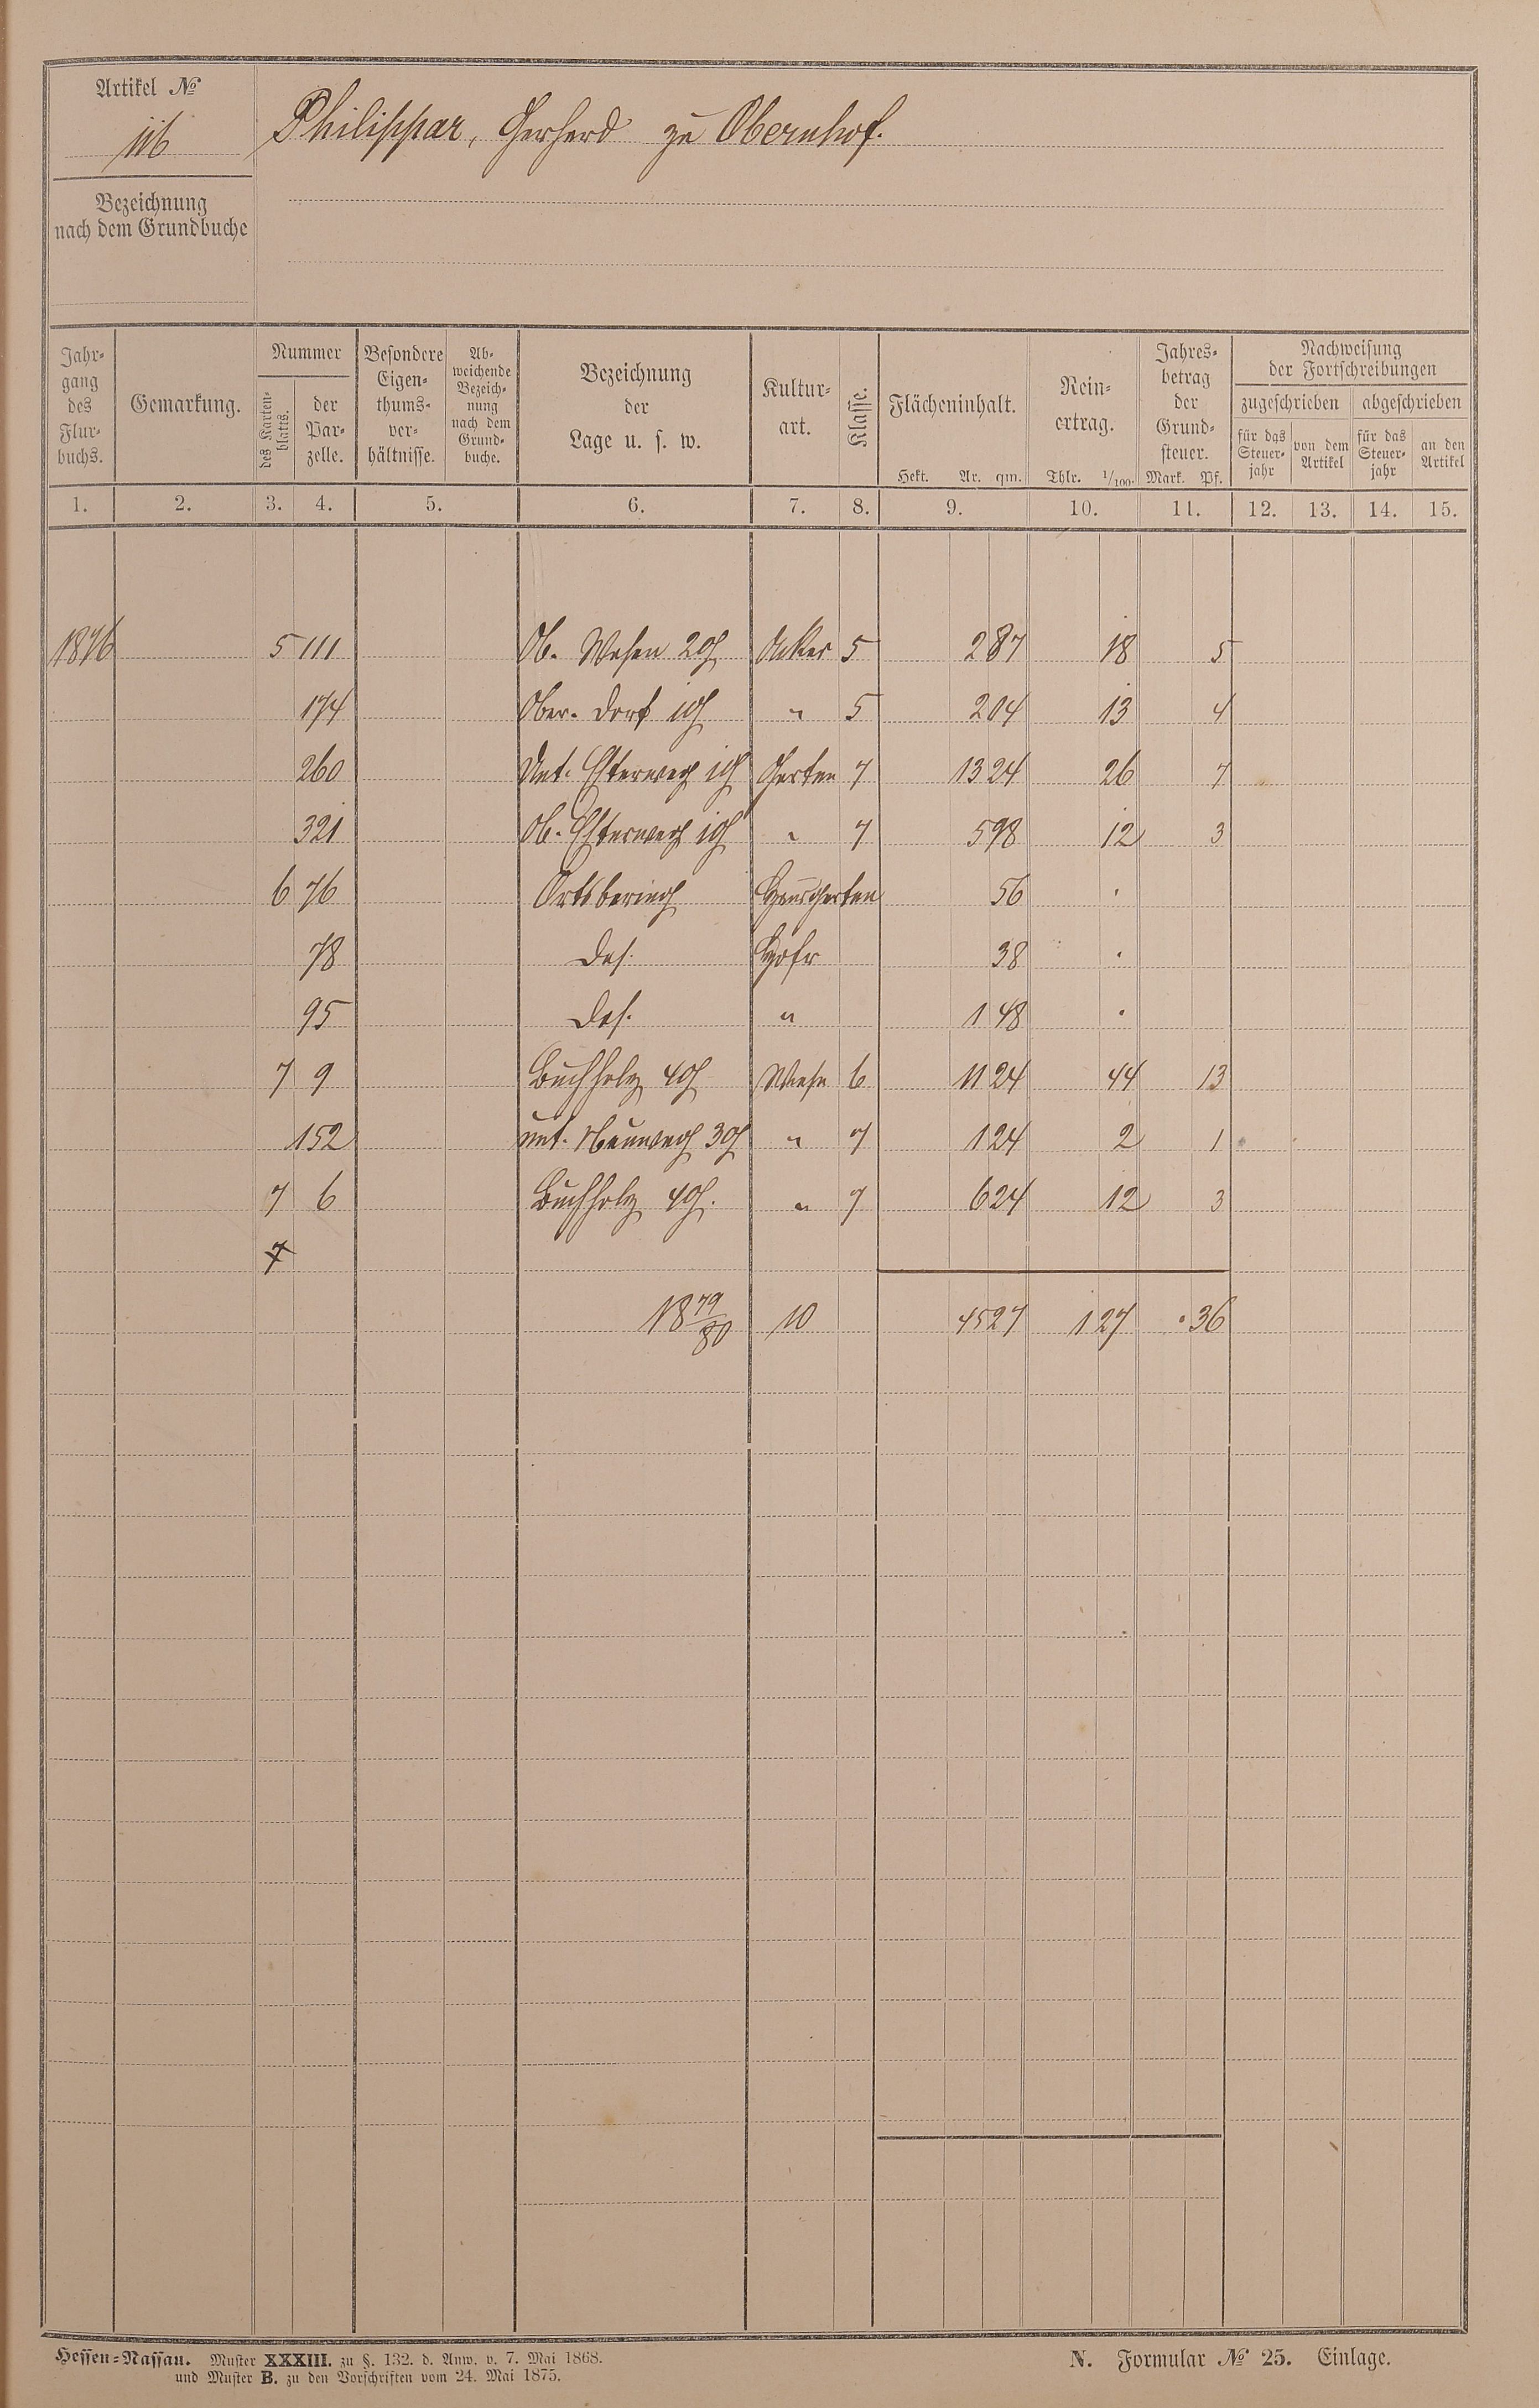 Artikel №
116
Philippar, Gerhard zu Obernhof.
Bezeichnung
nach dem Grundbuche
Jahrgang des Flurbuchs. Gemarkung. Nummer des Kartenblatts. der Parzelle. Besondere Eigenthumsverhältnisse. Abweichende Bezeichnung nach dem Grundbuche. Bezeichnung der Lage u. s. w. Kulturart. Klasse. Flächeninhalt. Hekt. Ar. qm. Reinertrag. Thlr. 1/100. Jahresbetrag der Grundsteuer. Mark. Pf. Nachweisung der Fortschreibungen zugeschrieben für das Steuerjahr von dem Artikel abgeschrieben für das Steuerjahr an den Artikel
1. 2. 3. 4. 5. 6. 7. 8. 9. 10. 11. 12. 13. 14. 15.
1876 5 111 Ob. 2 Acker 5 2 87 18 5
174 Ober. Dorf 1 " 5 2 04 13 4
260 Unt. 1 Garten 7 13 24 26 7
321 Ob. 1 " 7 5 98 12 3
6 76 Ortsbering Hausgarten 56 .
78 Das. Hofr 38 .
95 Das. " 1 48 .
7 9 Buchholz 4 Wiese 6 11 24 44 13
152 unt. 3 " 7 1 24 2 1
7 6 Buchholz 4 " 7 6 24 12 3
7
1879/80 10 45 27 1 27 . 36
Hessen-Nassau. Muster XXXIII. zu §. 132. d. Anw. v. 7. Mai 1868.
und Muster B. zu den Vorschriften vom 24. Mai 1875.
N. Formular № 25. Einlage.